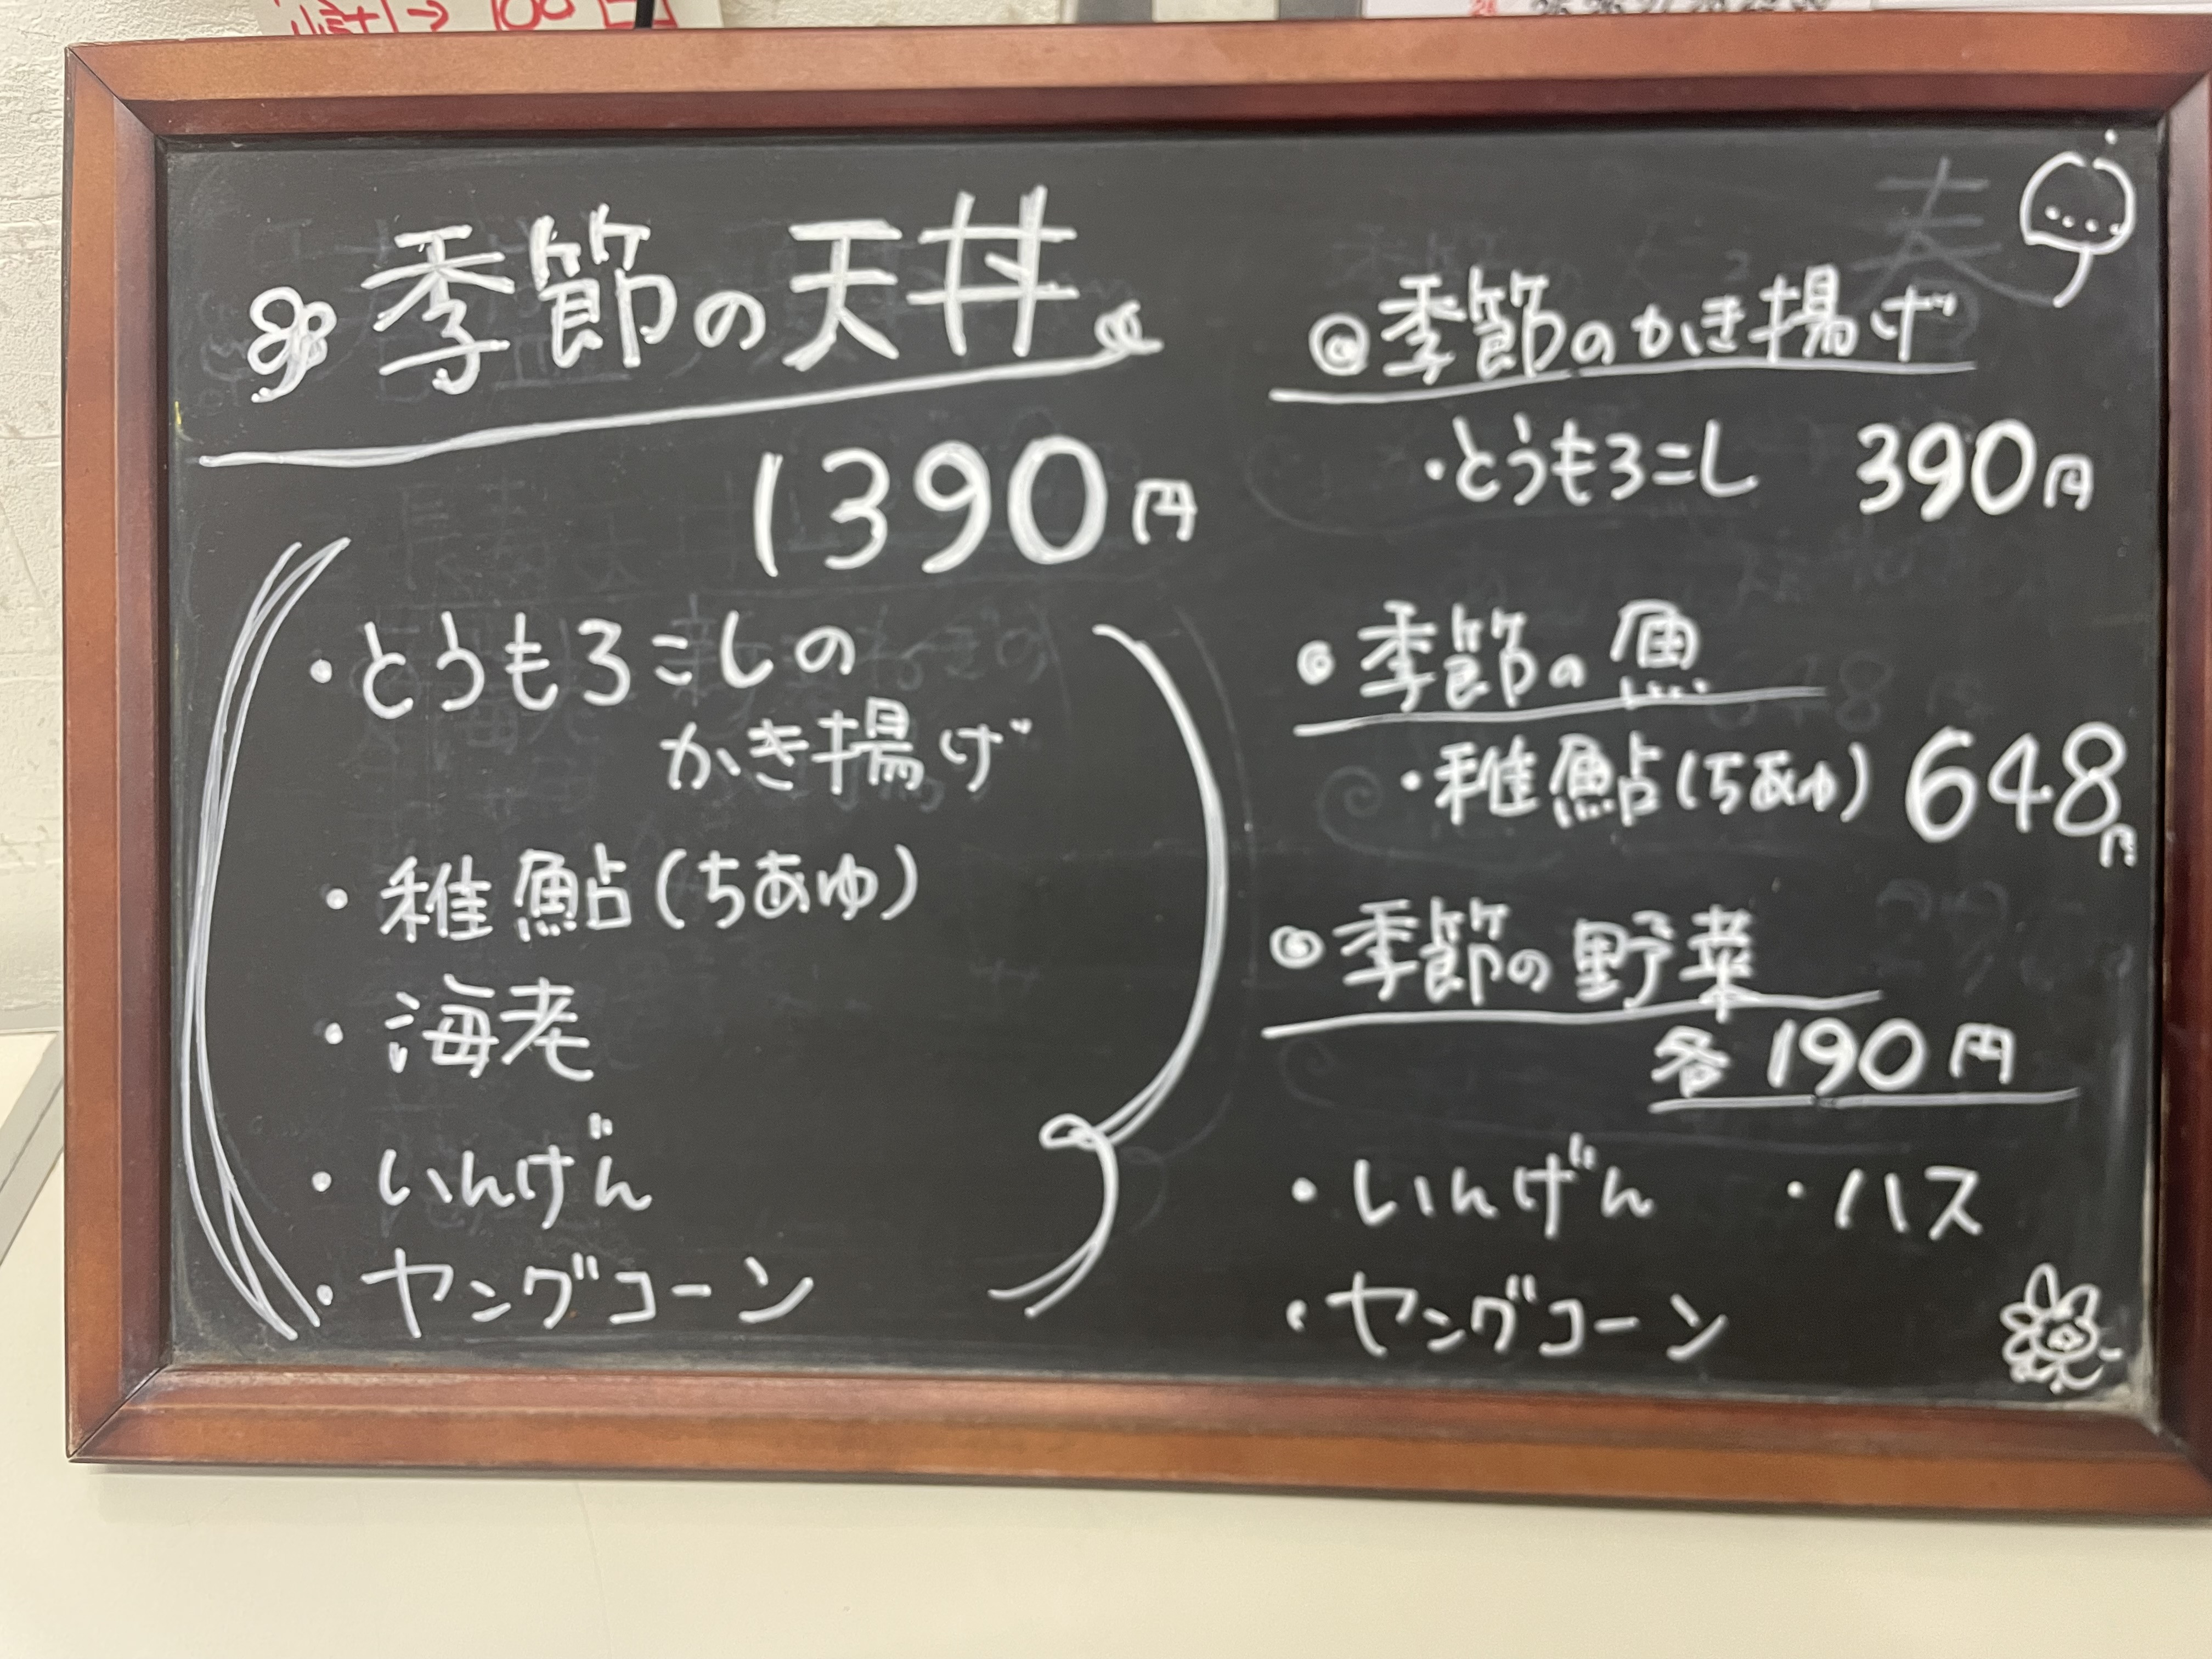 季節の天丼
1390円
・とうもろこしの
かき揚げ
・稚鮎(ちあゆ)
・海老
・いんげん
・ヤングコーン
◎季節のかき揚げ
・とうもろこし 390円
◎季節の魚
・稚鮎(ちあゆ) 648円
◎季節の野菜
各190円
・いんげん ・ハス
・ヤングコーン